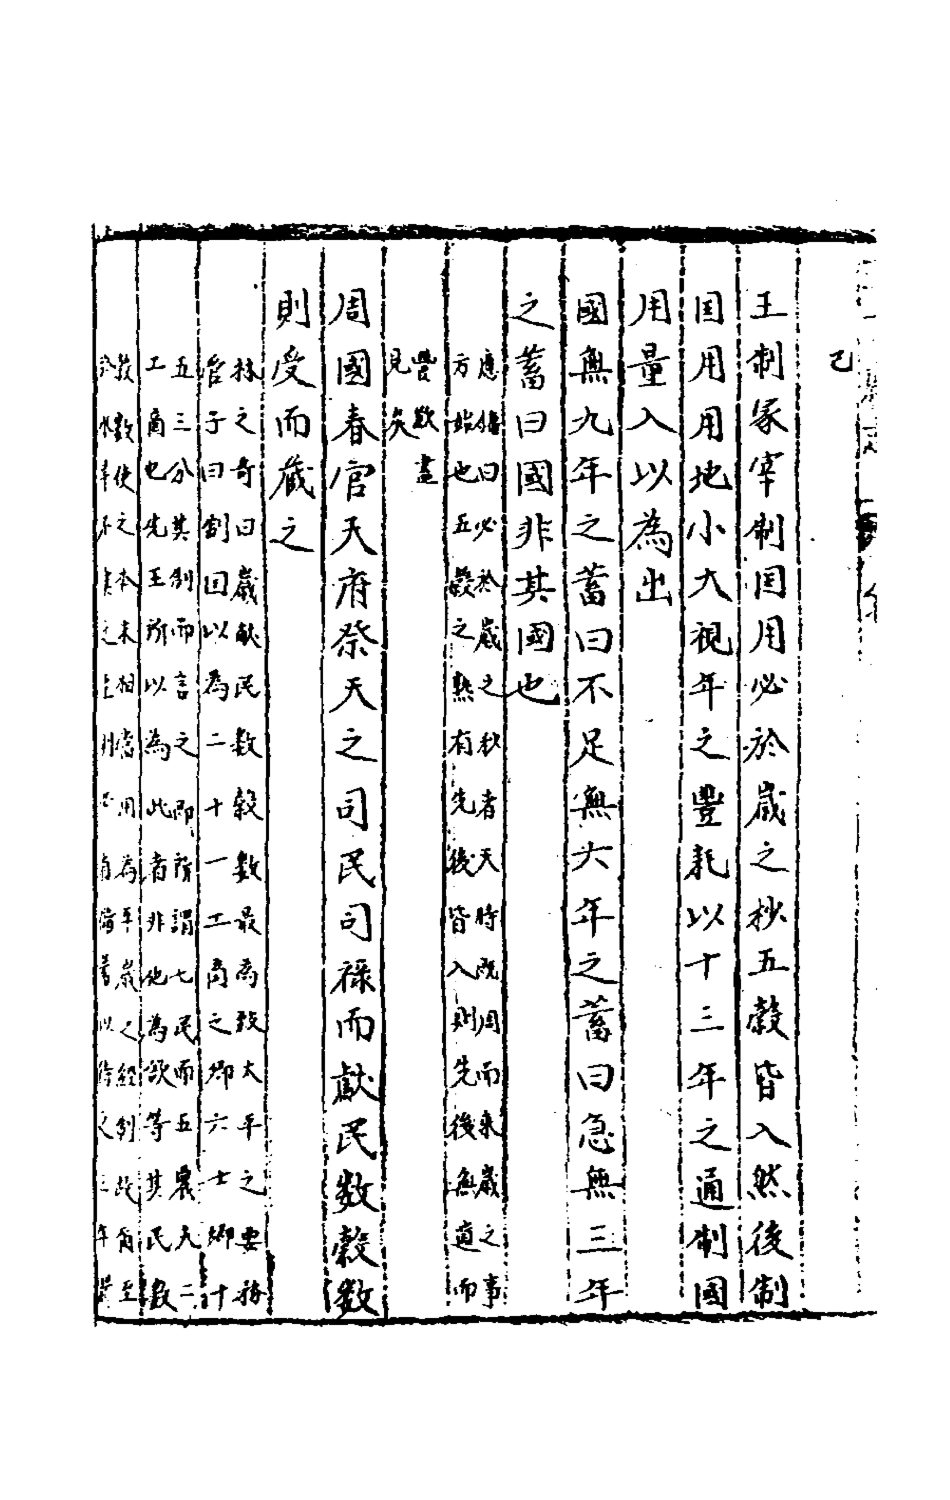 已
王制冢宰制囯用必於歲之杪五穀皆入然後制
囯用用地小大視年之豐耗以十三年之通制國
用量入以為出
國無九年之蓄曰不足無六年之蓄曰急無三年
之蓄曰國非其國也
應鏞曰必於歲之杪者天時既周而來歲之事
方始也五穀之熟有先後皆入則先後無遺而
豐歉盡
見矣
周國春官天府祭天之司民司祿而獻民数穀数
則受而藏之
林之奇曰歲獻民数穀數最為致太平之要務
管子曰制囯以為二十一工商之鄉六士鄉十
五三分其制而言之即所謂七民而五農夫二
工商也先王所以為此者非他為欲等其民數
穀數使之本末相當用為平歲之經制故有至